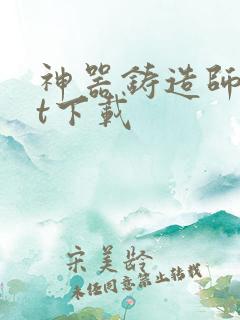 神器铸造師
t下載
宋美龄
未经同意禁止转载